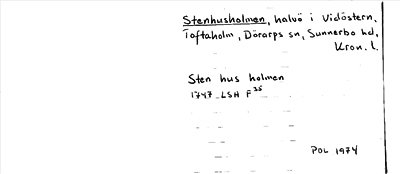 Stenhusholmen, halvö i Vidöstern,
Toftaholm, Dörarps sn, Sunnerbo hd,
Kron. l.
Sten hus holmen
1747 LSH F 35
POL 1974